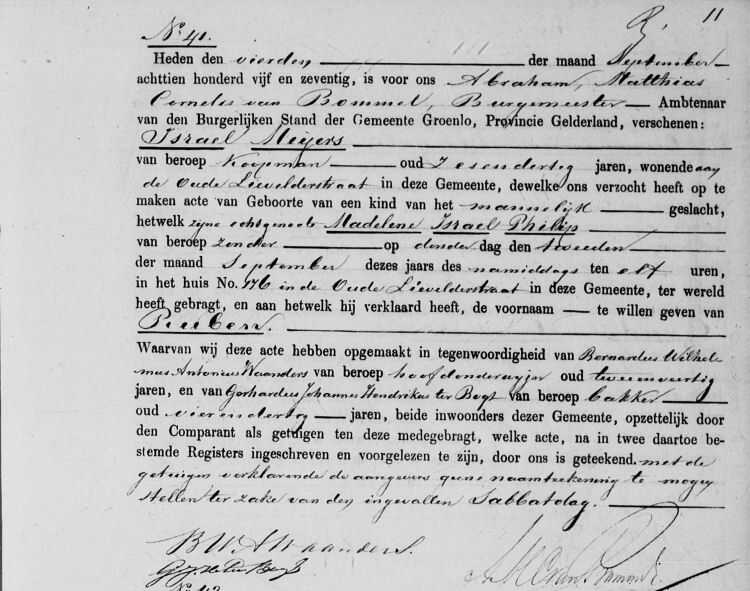 11
No. 41.
Heden den vierden der maand September
achttien honderd vijf en zeventig, is voor ons Abraham, Matthias
Cornelis van Bommel, Burgemeester Ambtenaar
van den Burgerlijken Stand der Gemeente Groenlo, Provincie Gelderland, verschenen:
Israel Meijers
van beroep Koopman oud zesendertig jaren, wonende aan
de Oude Lievelderstraat in deze Gemeente, dewelke ons verzocht heeft op te
maken acte van Geboorte van een kind van het mannelijk geslacht,
hetwelk zijne echtgenoote Madelene Israel Philip
van beroep zonder op donder dag den tweeden
der maand September dezes jaars des namiddags ten elf uren,
in het huis No. 176 in de Oude Lievelderstraat in deze Gemeente, ter wereld
heeft gebragt, en aan hetwelk hij verklaard heeft, de voornaam te willen geven van
Ruben.
Waarvan wij deze acte hebben opgemaakt in tegenwoordigheid van Bernardus Wilhel-
mus Antonius Waanders van beroep hoofdonderwijzer oud tweeenveertig
jaren, en van Gerhardus Johannes Hendrikus ter Bogt van beroep bakker
oud vierendertig jaren, beide inwoonders dezer Gemeente, opzettelijk door
den Comparant als getuigen ten deze medegebragt, welke acte, na in twee daartoe be-
stemde Registers ingeschreven en voorgelezen te zijn, door ons is geteekend. met de
getuigen verklarende de aangever geene naamteekening te mogen
stellen ter zake van den ingevallen Sabbatdag.
B W A Waanders.